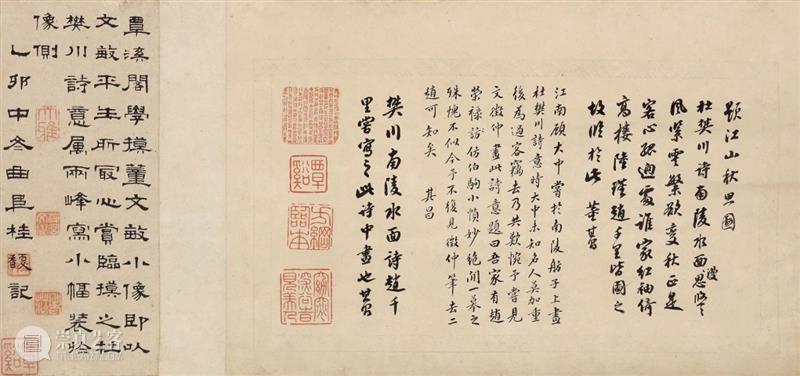 題江山秋思圖
杜樊川詩南陵水面漫悠〻
風紧雲繁欲變秋正是
客心孤迥處誰家紅袖倚
高樓陸瑾趙千里皆圖之
故臨於此 董其昌
江南顧大中嘗於南陵舫子上畫
杜樊川詩意時大中未知名人莫加重
後為過客竊去乃共歎惋予嘗見
文徵仲畫此詩意題曰吾家有趙
榮祿仿伯駒小幀妙絕閒一摹之
殊愧不似今予不復見徵仲筆去二
趙可知矣 其昌
樊川南陵水面詩趙千
里嘗寫之此詩中畫也 其昌
覃谿
方綱臨本
覃溪閣學摸董文敏小像即以
文敏平生所冣心賞臨摸之杜
樊川詩意屬兩峰寫小幅裝於
像側
乙卯中冬曲阜桂馥記
覃谿
崇真艺客